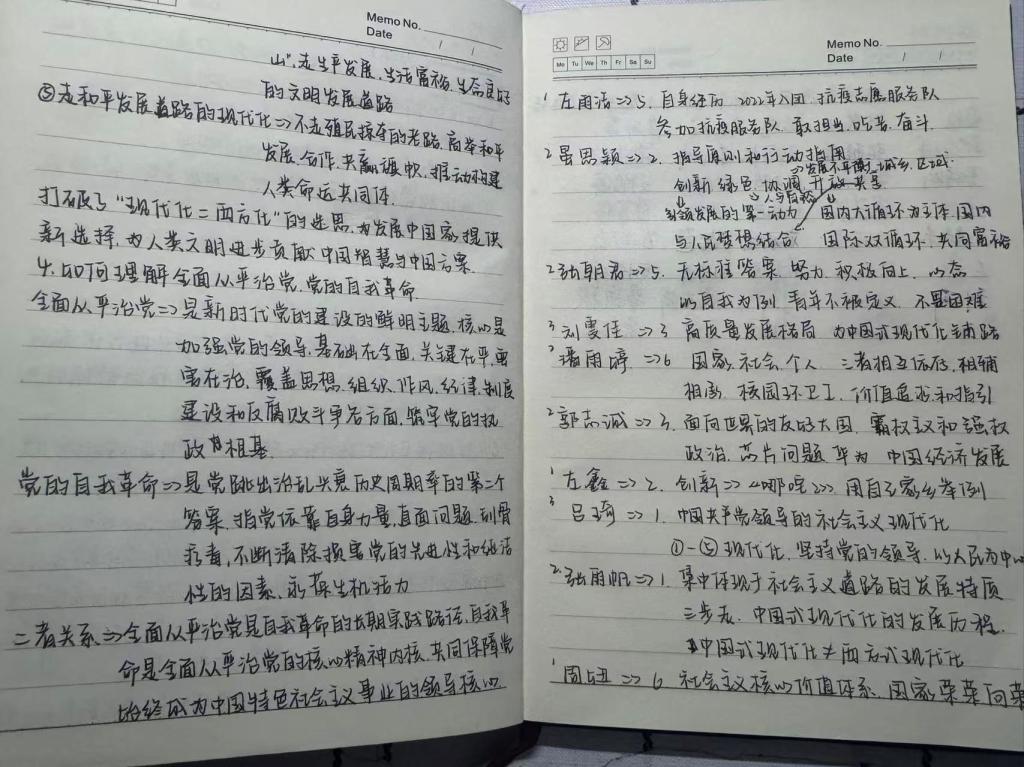 Memo No.
Date / /
山”,走生产发展、生活富裕、生态良好
的文明发展道路
⑤走和平发展道路的现代化⇒不走殖民掠夺的老路,高举和平
发展、合作、共赢旗帜,推动构建
人类命运共同体.
打破了“现代化=西方化”的迷思,为发展中国家提供
新选择,为人类文明进步贡献中国智慧与中国方案.
4.如何理解全面从严治党、党的自我革命.
全面从严治党⇒是新时代党的建设的鲜明主题,核心是
加强党的领导,基础在全面,关键在严,要
害在治,覆盖思想、组织、作风、纪律、制度
建设和反腐败斗争各方面,筑牢党的执
政根基.
党的自我革命⇒是党跳出治乱兴衰历史周期率的第二个
答案,指党依靠自身力量,直面问题、刮骨
疗毒,不断清除损害党的先进性和纯洁
性的因素,永葆生机活力
二者关系⇒全面从严治党是自我革命的长期实践路径,自我革
命是全面从严治党的核心精神内核,共同保障党
始终成为中国特色社会主义事业的领导核心
Memo No.
Mo Tu We Th Fr Sa Su
Date / /
1 左雨洁⇒5. 自身经历 2022年入团 抗疫志愿服务队
参加抗疫服务队 敢担当、吃苦、奋斗.
2 晏思颖⇒2. 指导原则和行动指南
⇒发展不平衡 城乡、区域.
创新 绿色 协调 开放 共享
⇒人与自然
引领发展的第一动力 国内大循环为主体,国内
与人民梦想结合 国际双循环、共同富裕
2 张朝君⇒5. 无标准答案 努力 积极向上、心态
以自我为例 青年不被定义 不畏困难
3 刘雯佳⇒3 高质量发展格局 为中国式现代化铺路
2 潘雨婷⇒6 国家、社会、个人 三者相互依存、相辅
相承 校园环卫工 价值追求和指引
2 郭志诚⇒3. 面向世界的友好大国 霸权主义和强权
政治. 芯片问题 华为 中国经济发展
1 左鑫⇒2. 创新⇒《哪吒2》 用自己家乡举例
3 吕琦⇒1. 中国共产党领导的社会主义现代化
①-⑤现代化. 坚持党的领导、以人民为中心
2 张雨帆⇒1. 集中体现于社会主义道路的发展特质
三步走、中国式现代化的发展历程.
中国式现代化≠西方式现代化
1 ⇒6 社会主义核心价值体系、国家荣荣向荣